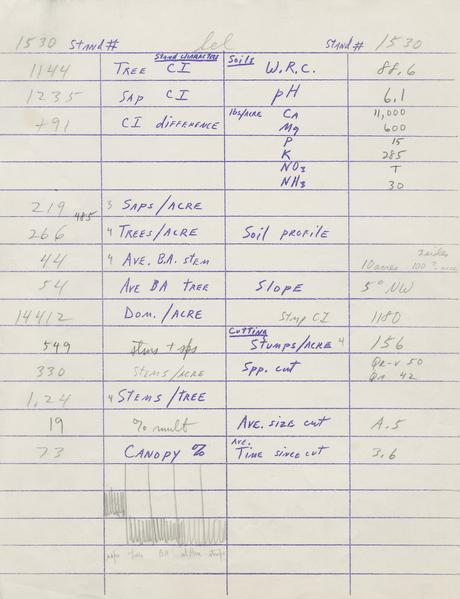 1530 Stand# lel Stand# 1530
Stand Characters Soils
1144 Tree CI W.R.C. 88.6
1235 Sap CI pH 6.1
+91 CI difference lbs/acre Ca 11,000
Mg 600
P 15
K 285
NO3 T
NH3 30
219 485 3 Saps/acre
266 4 Trees/acre Soil profile
44 4 Ave. B.A. stem 10 acres
54 Ave BA tree Slope 5° NW
14412 Dom./acre Stmp CI 1180
Cutting
549 stms + sps Stumps/acre 4 156
330 Stems/acre Spp. cut Qr-v 50
Qa 42
1.24 4 Stems/tree
19 % mult Ave. size cut A.5
73 Canopy % Ave. Time since cut 3.6
saps trees BA stumps